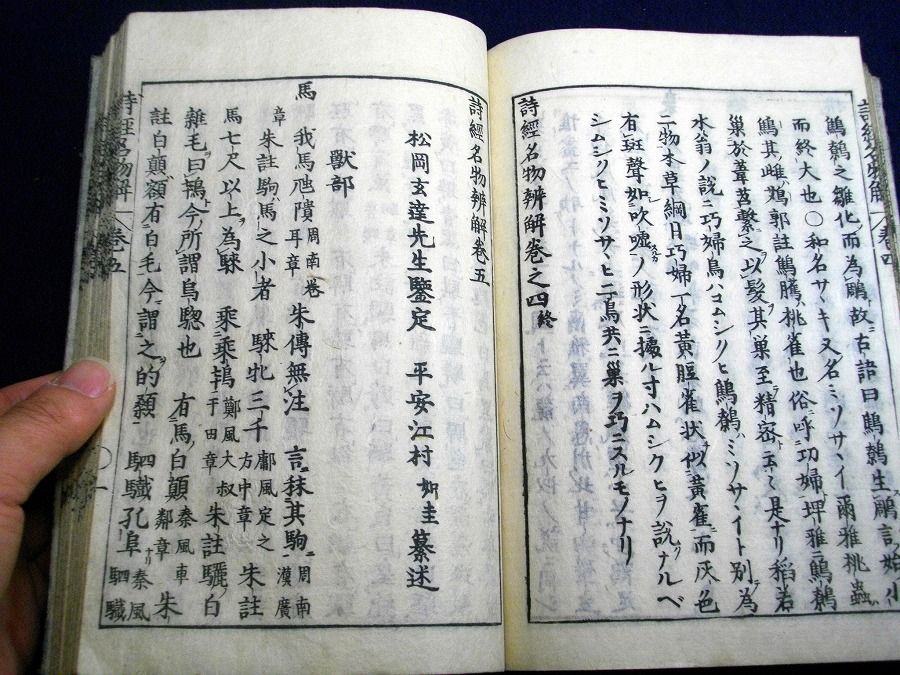 鷦鷯之雛化而為鵰故古諺曰鷦鷯生鵰言始小
而終大也〇和名サヽキ又名ミソサヽイ爾雅桃蟲
鷦其雌鴱郭註鷦䳟桃雀也俗呼巧婦埤雅鷦鷯
巢於葦苕繫之以髮其巢至精密云々是ナリ稻若
水翁ノ說ニ巧婦鳥ハコムシクヒ鷦鷯ハミソサヽイト別為
二物本草綱目巧婦一名黃脰雀狀似黃雀而灰色
有斑聲如吹噓ノ形狀ニ據ル寸ハムシクヒヲ說ナルベシ
ムシクヒミソサヽヒ二鳥共ニ巢ヲ巧ニスルモノナリ
詩經名物辨解卷之四終
詩經名物辨解卷五
松岡玄達先生鑒定 平安江村如圭纂述
獸部
馬 我馬虺隤周南卷耳章朱傳無注 言秣其駒周南漢廣
章朱註駒馬之小者 騋牝三千鄘風定之方中章朱註
馬七尺以上為騋 乘乘鴇鄭風大叔于田章朱註驪白
雜毛曰鴇今所謂烏驄也 有馬白顛秦風車鄰章朱
註白顛額有白毛今謂之的顙 駟驖孔阜秦風駟驖
詩經名物解 卷五
詩經名物解 卷四